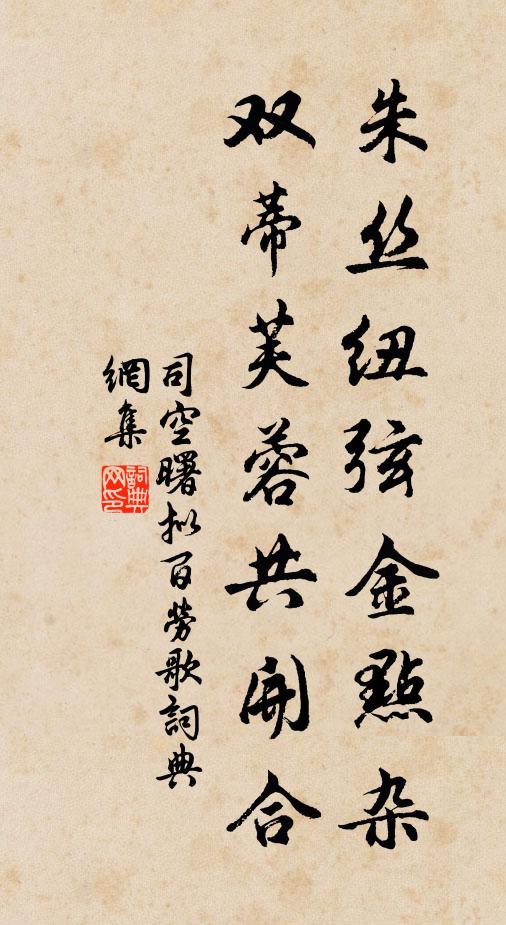 朱丝纽弦金點杂
双蒂芙蓉共開合
司空曙拟百劳歌詞典
網集
詞典
网印